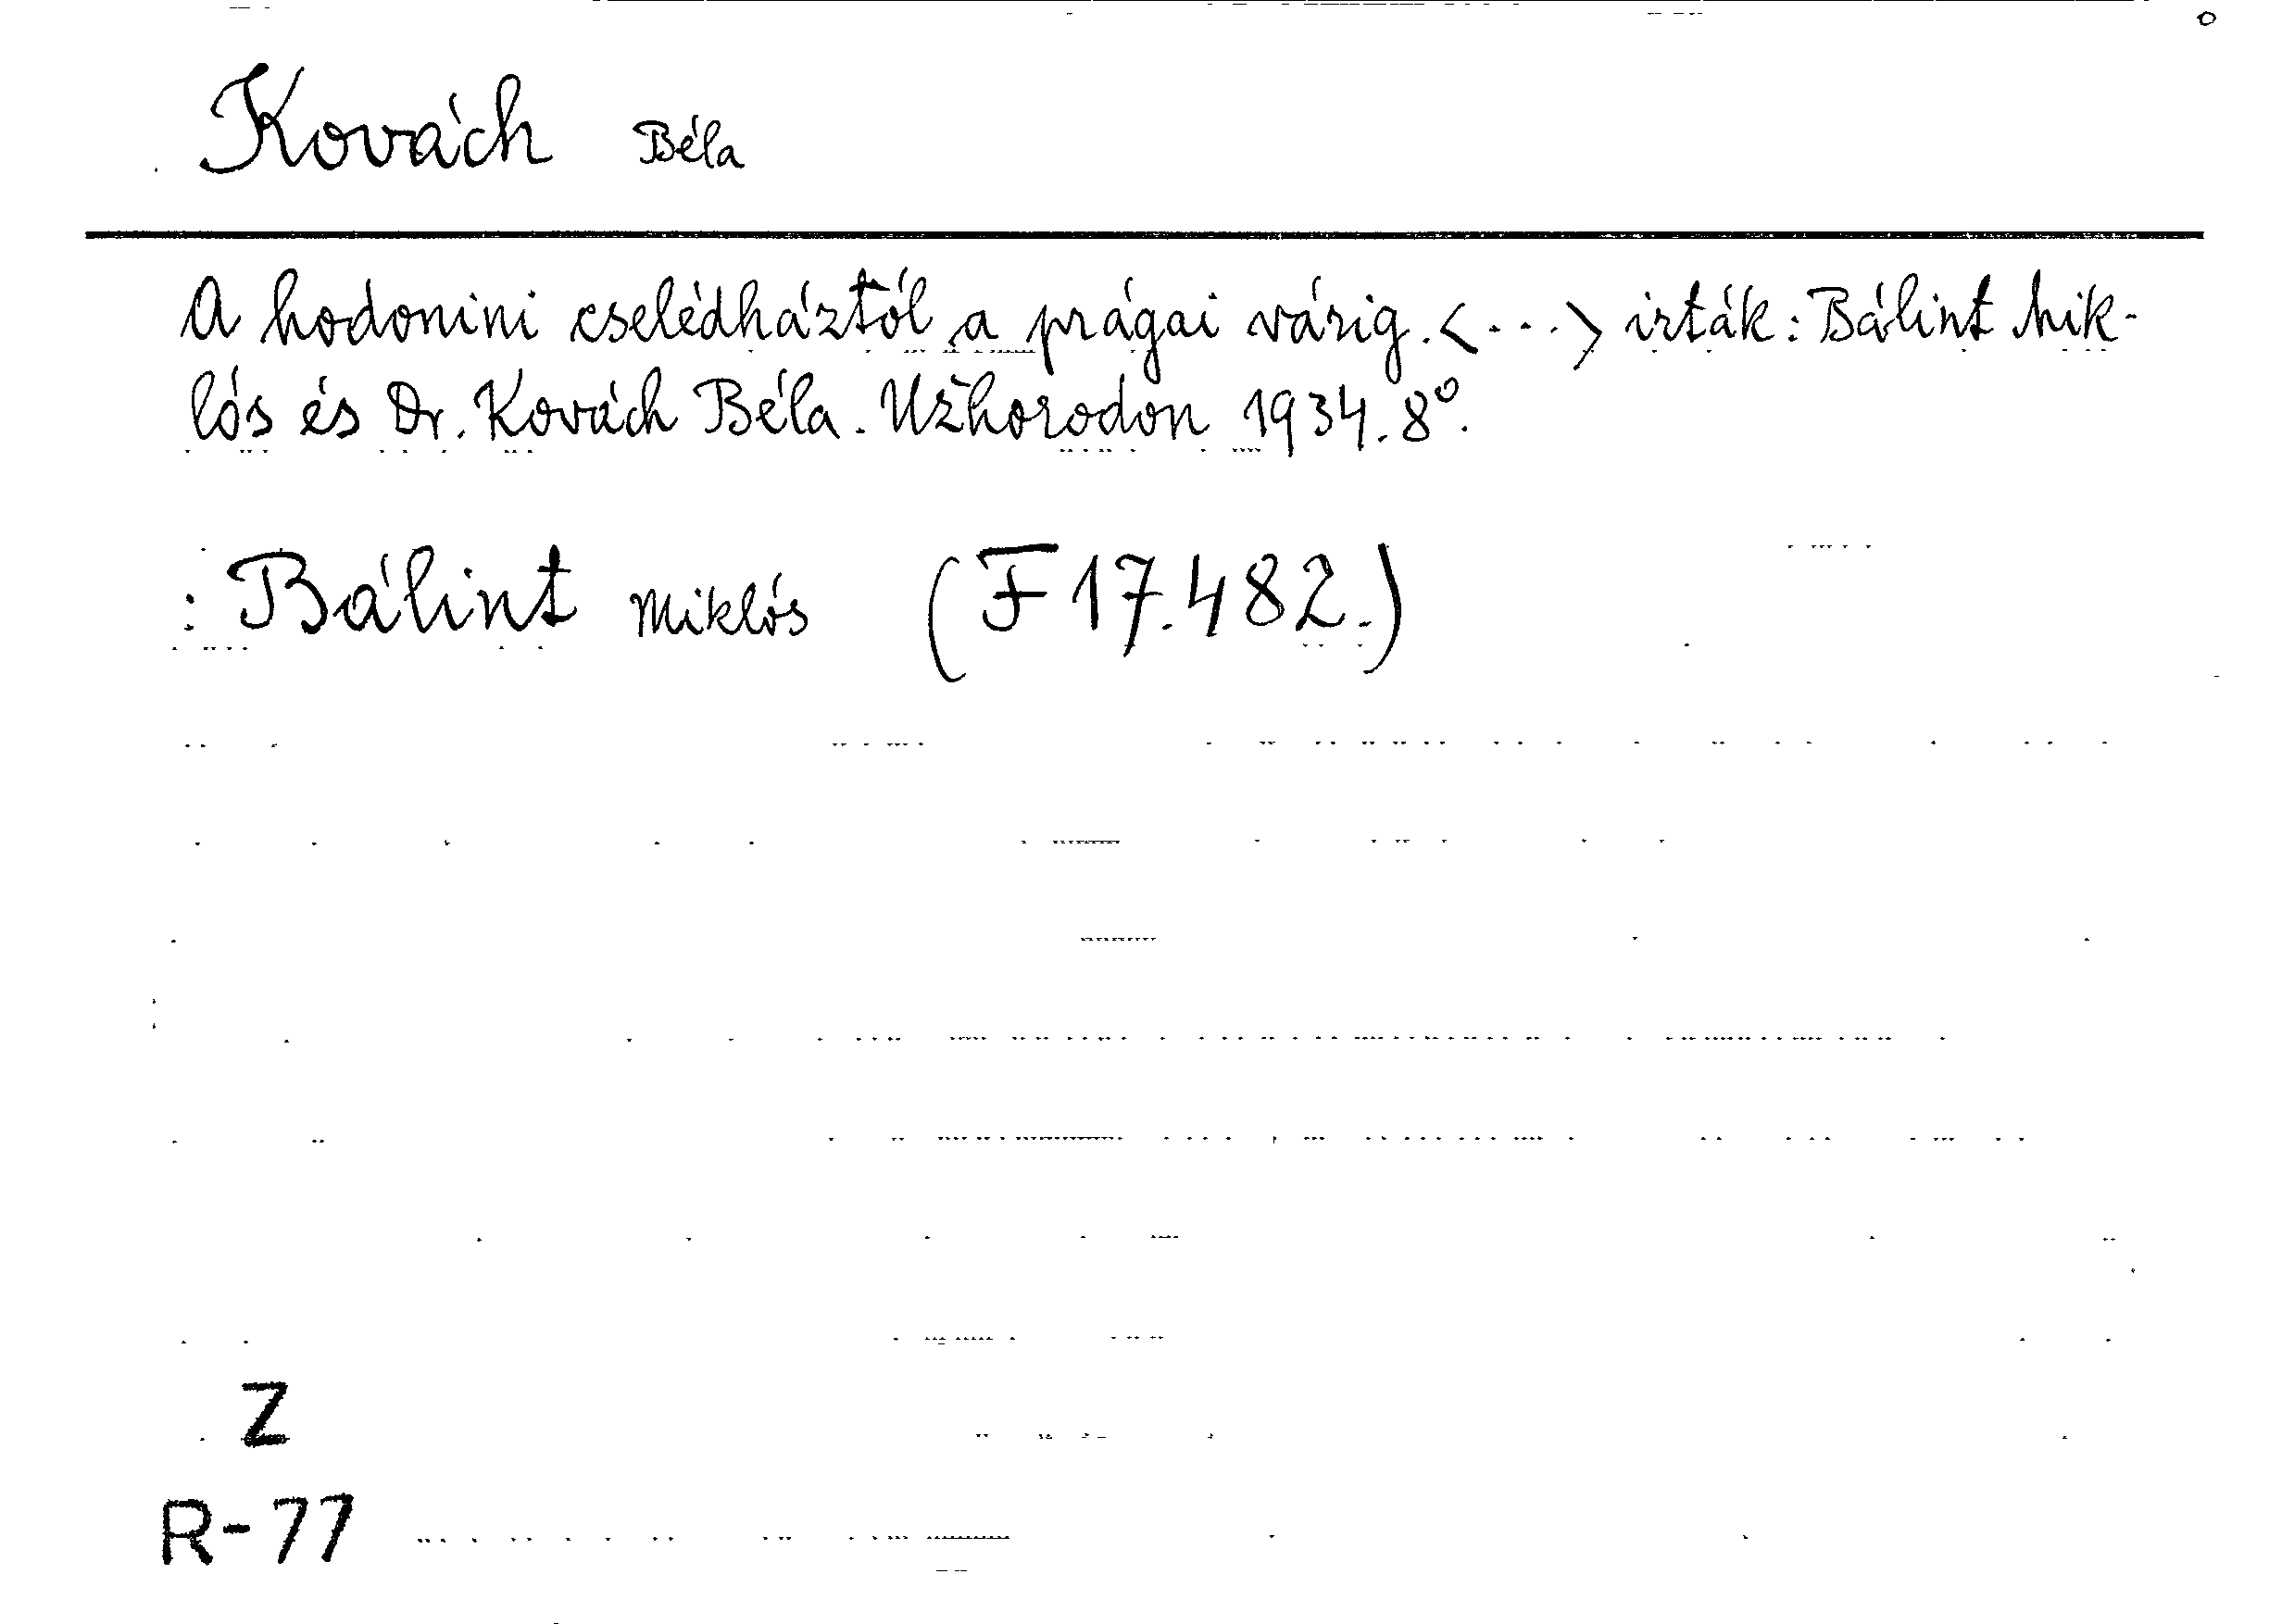 Kovách Béla
A hodonini cselédháztól a prágai várig. <...> irták: Bálint Mik-
lós és Dr. Kovách Béla. Užhorodon 1934. 8°.
: Bálint Miklós (F 17.482.)
Z
R-77